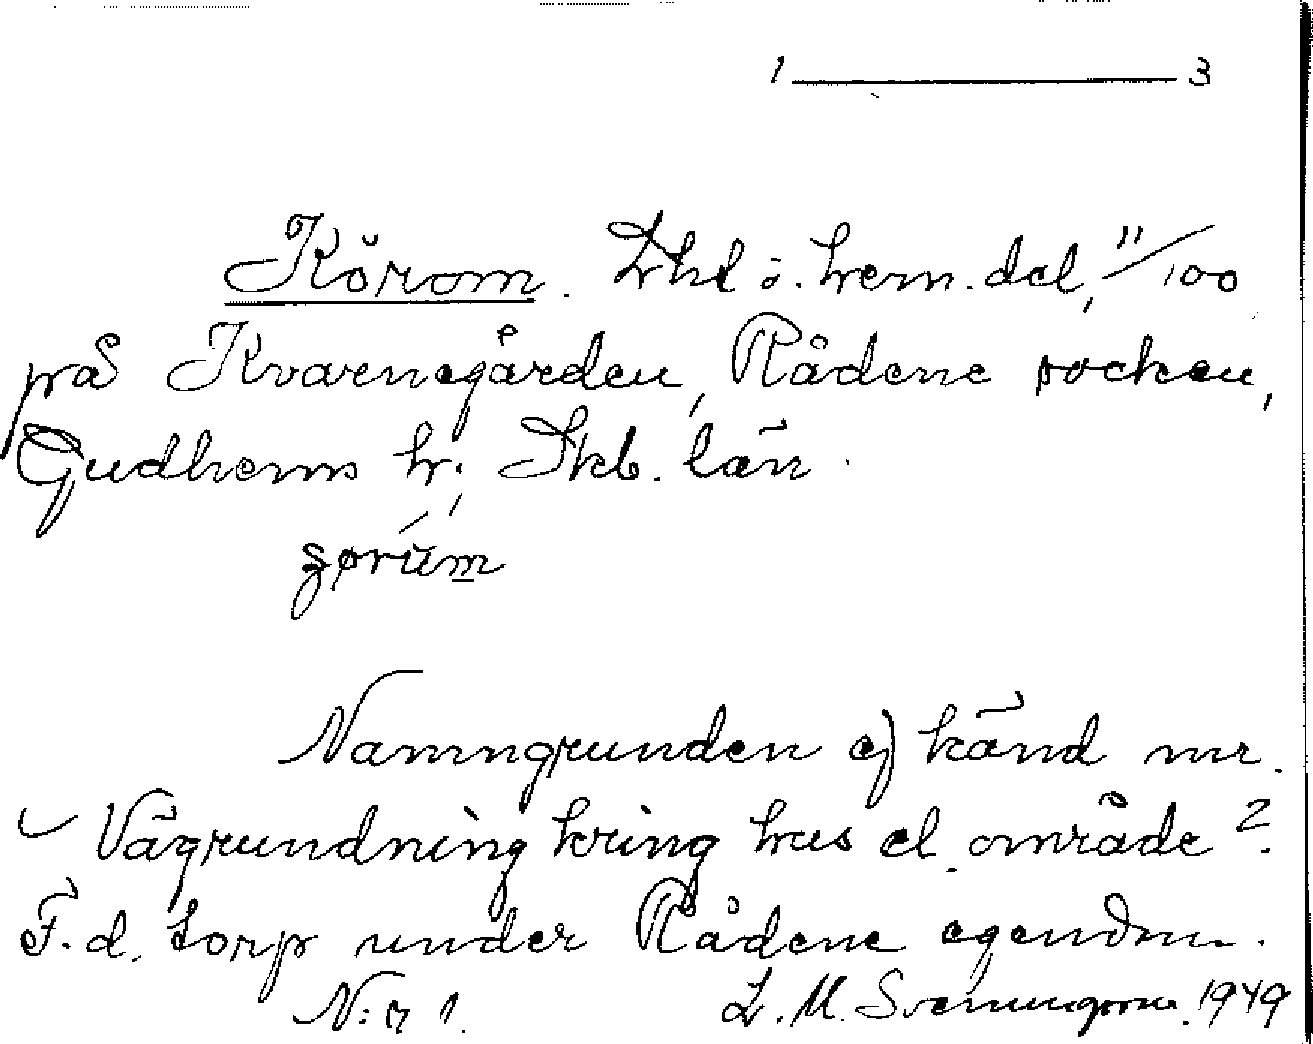 1 ——— 3
Körom. Lht o. hem. del, 11/100
på Kvarnegården, Rådene socken,
Gudhems hr; Skb. län.
Namngrunden ej känd mr.
Vägrundning kring hus el. område?
F. d. torp under Rådene egendom.
N:r 1. L. M. Svenungsson. 1949